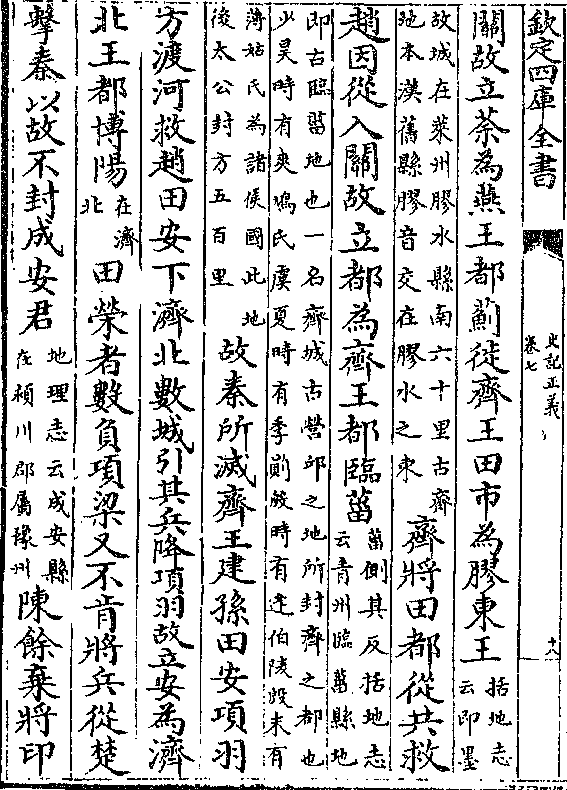 欽定四庫全書
史記正義
卷七
十八
關故立荼為燕王都薊徙齊王田市為膠東王
括地志
云即墨
故城在萊州膠水縣南六十里古齊
地本漢舊縣膠音交在膠水之東
齊將田都從共救
趙因從入關故立都為齊王都臨菑
菑側其反括地志
云青州臨菑縣地
即古臨菑地也一名齊城古營邱之地所封齊之都也
少昊時有爽鳩氏虞夏時有季萴殷時有逄伯陵殷末有
薄姑氏為諸侯國此地
後太公封方五百里
故秦所滅齊王建孫田安項羽
方渡河救趙田安下濟北數城引其兵降項羽故立安為濟
北王都博陽
在濟
北
田榮者數負項梁又不肯將兵從楚
擊秦以故不封成安君
地理志云成安縣
在潁川郡屬豫州
陳餘棄將印